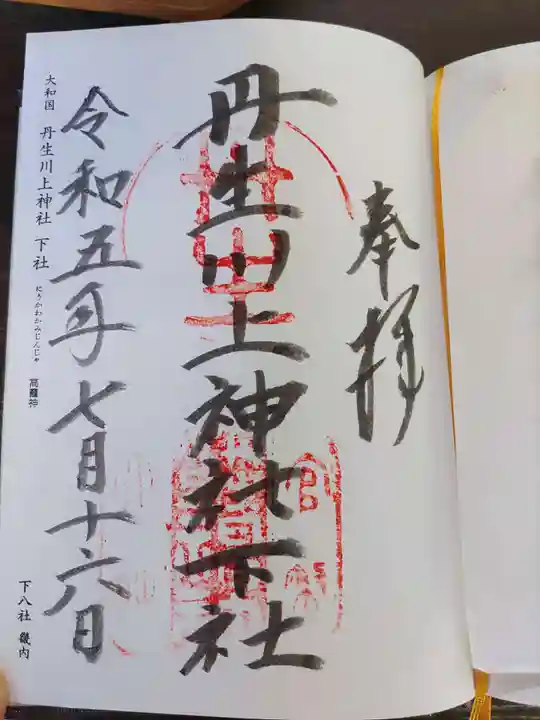 奉拝
丹生川上神社下社
令和五年七月十六日
大和国 丹生川上神社 下社
にうかわかみじんじゃ
高龗神
下八社 畿内